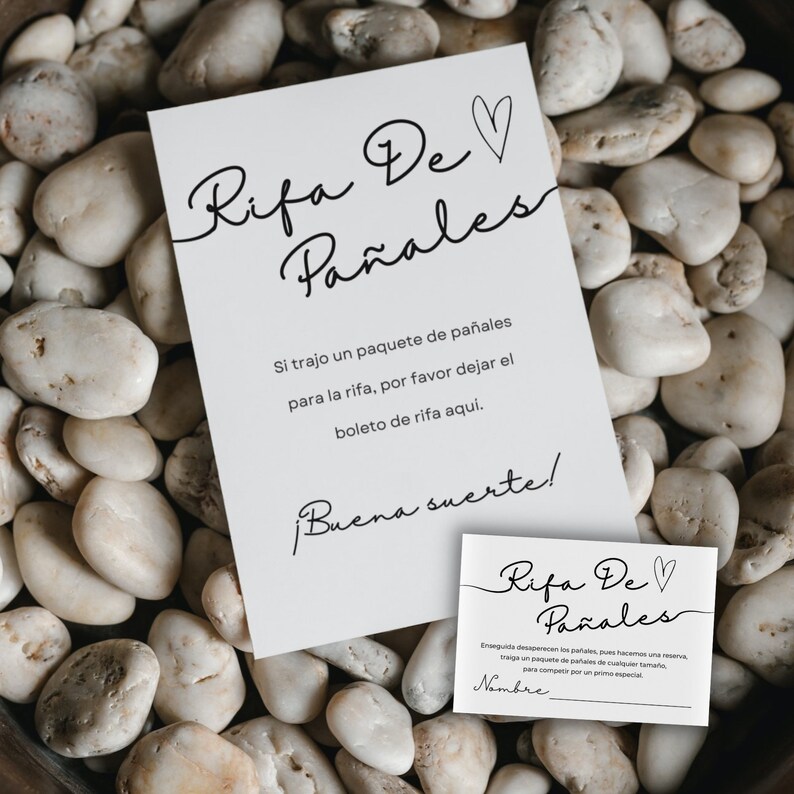 Rifa De
Pañales
Si trajo un paquete de pañales
para la rifa, por favor dejar el
boleto de rifa aquí.
¡Buena suerte!
Rifa De
Pañales
Enseguida desaparecen los pañales, pues hacemos una reserva,
traiga un paquete de pañales de cualquier tamaño,
para competir por un primo especial.
Nombre